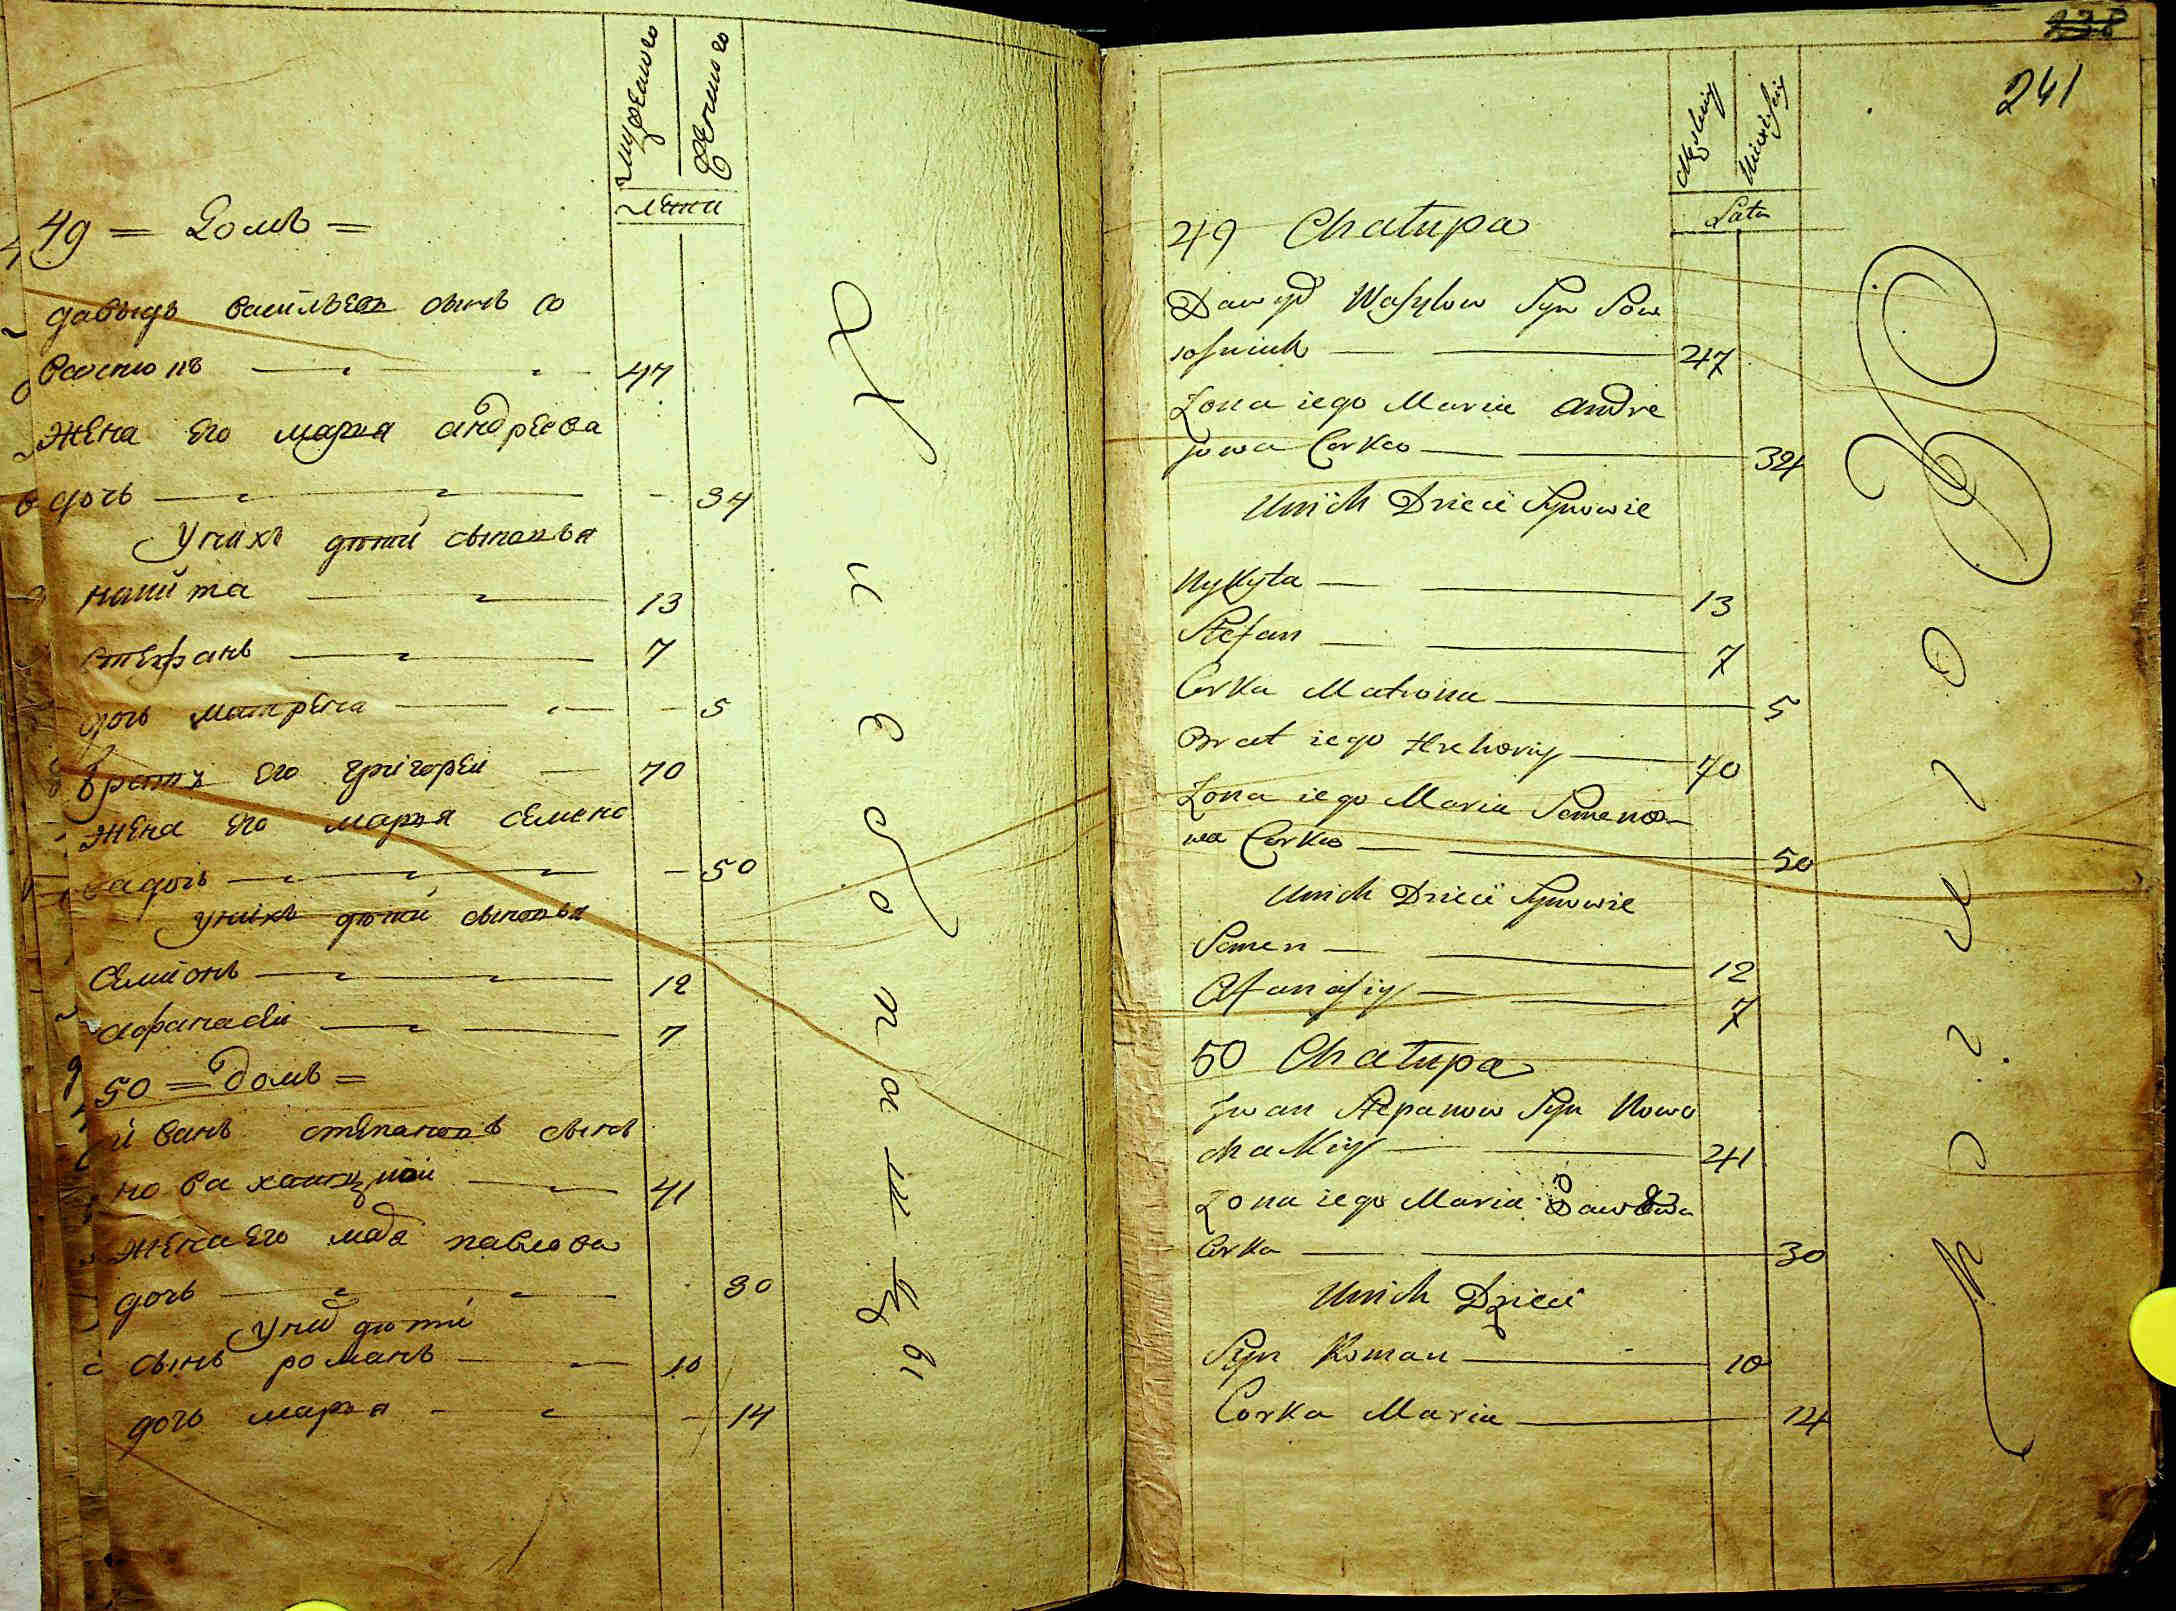 мужеского
женского
лета
49 = Домъ =
давыдъ васильевъ сынъ со
47
жена его марья андреева
дочь 34
унихъ дѣти сыновья
никита 13
стефанъ 7
дочь матрена 5
братъ его григорей 70
жена его марья семено
ва дочь 50
унихъ дѣти сыновья
Семионъ 12
афанасеи 7
50 = домъ =
иванъ степановъ сынъ
41
жена его павлова
дочь 30
дѣти
сынъ романъ 10
дочь марья 14
238
241
Męskiey
Lata
49 Chałupa
Dawyd Wasylow Syn Sow
47
Zona iego Maria Andre
jowa Corka 34
Unich Dzieci Synowie
Nykyta 13
Stefan 7
Corka Matrona 5
Brat iego Hrehoriy 70
Zona iego Maria Semeno-
wa Corka 50
Unich Dzieci Synowie
Semen 12
Afanasiy 7
50 Chałupa
Jwan Stepanow Syn Nowo
chackiy 41
Zona iego Maria
Corka 30
Unich Dzieci
Syn Roman 10
Corka Maria 14